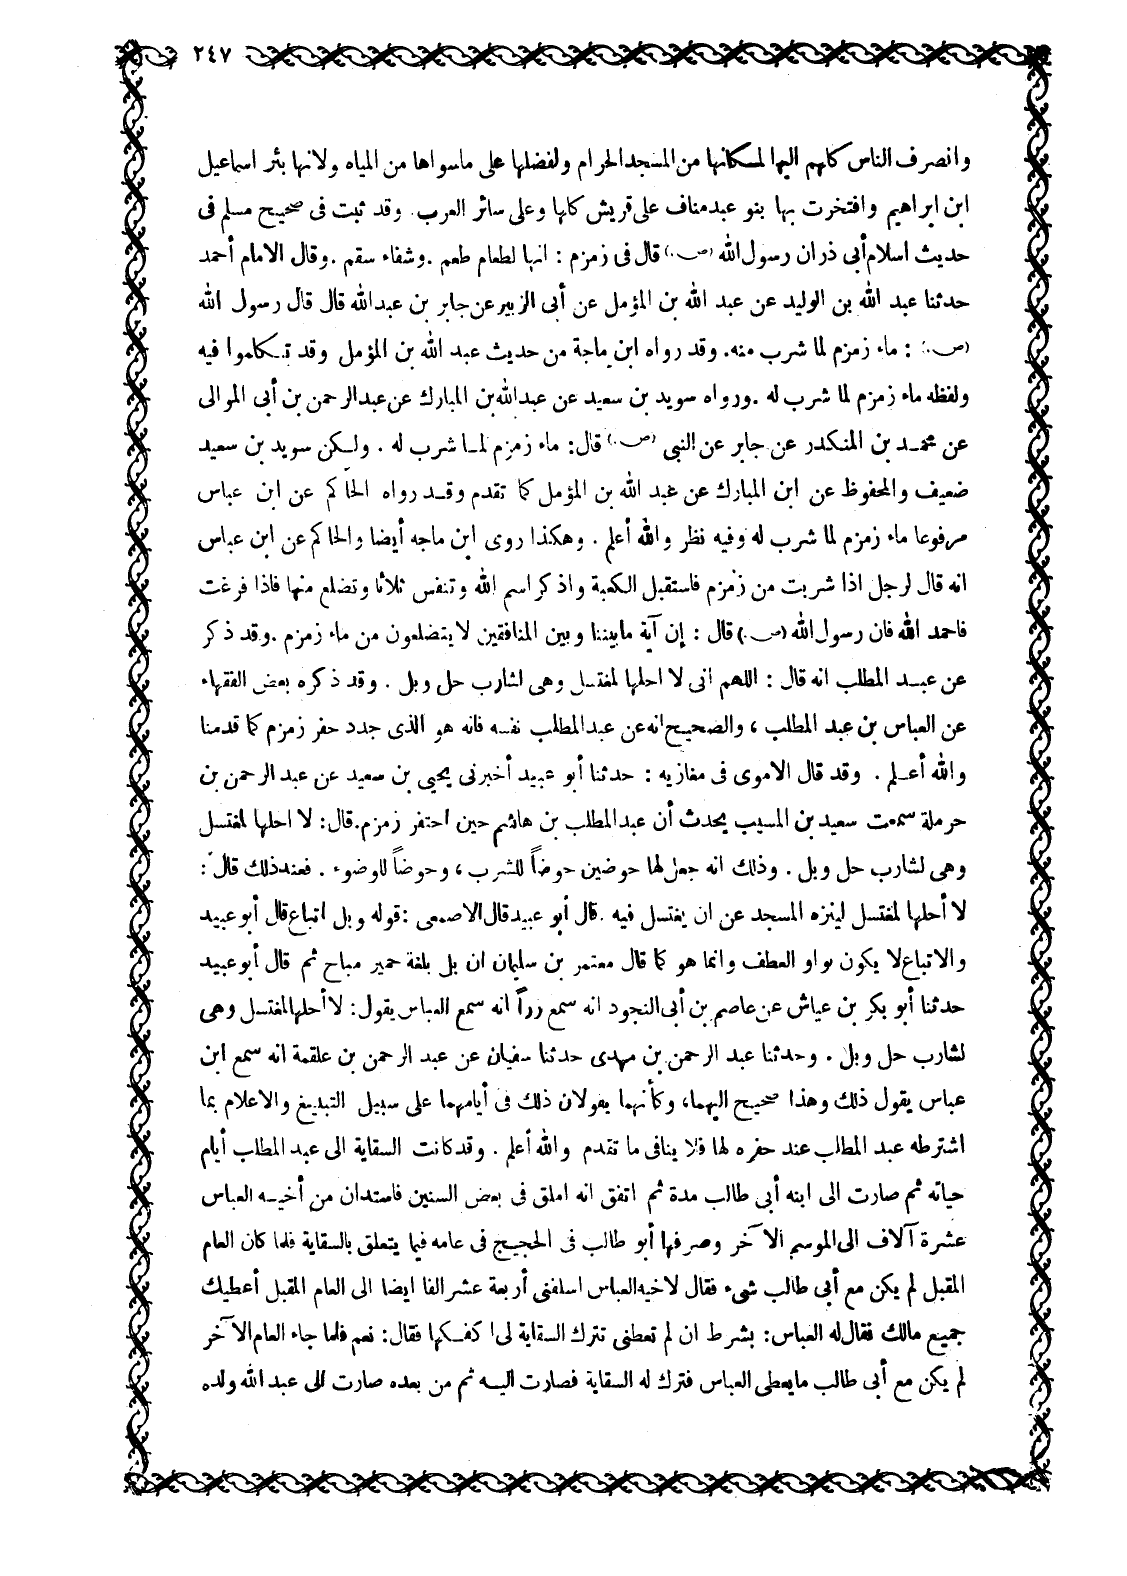 ٢٤٧
وانصرف الناس كلهم اليها لمسكانها من المسجد الحرام ولفضلها على ماسواها من المياه ولانها بئر اسماعيل
ابن ابراهيم وافتخرت بها بنو عبد مناف على قريش كلها وعلى سائر العرب. وقد ثبت فى صحيح مسلم فى
حديث اسلام أبى ذر ان رسول الله (ص.) قال فى زمزم : انها لطعام طعم . وشفاء سقم . وقال الامام أحمد
حدثنا عبد الله بن الوليد عن عبد الله بن المؤمل عن أبى الزبير عن جابر بن عبد الله قال قال رسول الله
(ص.) : ماء زمزم لما شرب منه. وقد رواه ابن ماجة من حديث عبد الله بن المؤمل وقد تكلموا فيه
ولفظه ماء زمزم لما شرب له . ورواه سويد بن سعيد عن عبد الله بن المبارك عن عبد الرحمن بن أبى الموالى
عن محمد بن المنكدر عن جابر عن النبى (ص.) قال: ماء زمزم لما شرب له . ولكن سويد بن سعيد
ضعيف والمحفوظ عن ابن المبارك عن عبد الله بن المؤمل كما تقدم وقد رواه الحاكم عن ابن عباس
مرفوعا ماء زمزم لما شرب له وفيه نظر والله أعلم . وهكذا روى ابن ماجه أيضا والحاكم عن ابن عباس
انه قال لرجل اذا شربت من زمزم فاستقبل الكعبة واذكر اسم الله وتنفس ثلاثا وتضلع منها فاذا فرغت
فاحمد الله فان رسول الله (ص.) قال : إن آية مابيننا وبين المنافقين لا يتضلعون من ماء زمزم . وقد ذكر
عن عبد المطلب انه قال : اللهم انى لا احلها لمغتسل وهى لشارب حل وبل . وقد ذكره بعض الفقهاء
عن العباس بن عبد المطلب ، والصحيح انه عن عبد المطلب نفسه فانه هو الذى جدد حفر زمزم كما قدمنا
والله أعلم . وقد قال الاموى فى مغازيه : حدثنا أبو عبيد أخبرنى يحيى بن سعيد عن عبد الرحمن بن
حرملة سمعت سعيد بن المسيب يحدث أن عبد المطلب بن هاشم حين احتفر زمزم. قال: لا احلها لمغتسل
وهى لشارب حل وبل . وذلك انه جعل لها حوضين حوضاً للشرب ، وحوضاً للوضوء . فعند ذلك قال :
لا أحلها لمغتسل لينزه المسجد عن ان يغتسل فيه . قال أبو عبيد قال الاصمعى : قوله وبل اتباع قال أبو عبيد
والاتباع لا يكون بواو العطف وانما هو كما قال معتمر بن سليمان ان بل بلغة حمير مباح ثم قال أبو عبيد
حدثنا أبو بكر بن عياش عن عاصم بن أبى النجود انه سمع زراً انه سمع العباس يقول: لا أحلها لمغتسل وهى
لشارب حل وبل . وحدثنا عبد الرحمن بن مهدى حدثنا سفيان عن عبد الرحمن بن علقمة انه سمع ابن
عباس يقول ذلك وهذا صحيح اليهما، وكأنهما يقولان ذلك فى أيامهما على سبيل التبليغ والاعلام بما
اشترطه عبد المطلب عند حفره لها فلا ينافى ما تقدم والله أعلم . وقد كانت السقاية الى عبد المطلب أيام
حياته ثم صارت الى ابنه أبى طالب مدة ثم اتفق انه املق فى بعض السنين فاستدان من أخيه العباس
عشرة آلاف الى الموسم الآخر وصرفها أبو طالب فى الحجيج فى عامه فيما يتعلق بالسقاية فلما كان العام
المقبل لم يكن مع أبى طالب شىء فقال لاخيه العباس اسلفنى أربعة عشر الفا ايضا الى العام المقبل أعطيك
جميع مالك فقال له العباس: بشرط ان لم تعطنى تترك السقاية لى اكفكها فقال: نعم فلما جاء العام الآخر
لم يكن مع أبى طالب مايعطى العباس فترك له السقاية فصارت اليه ثم من بعده صارت الى عبد الله ولده